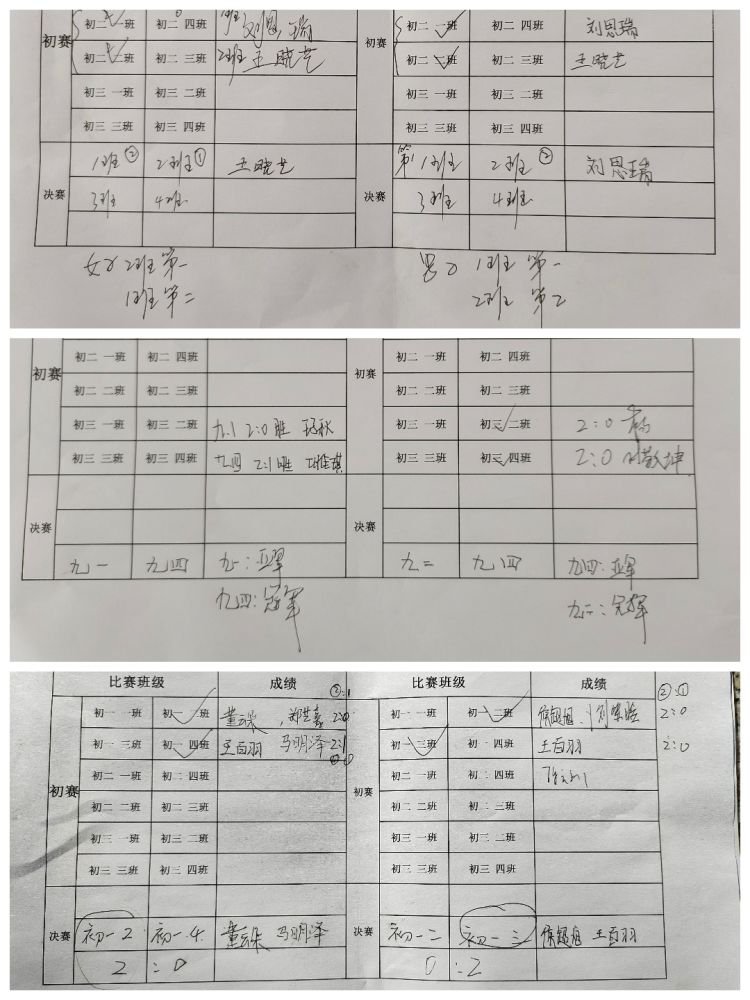 初二 一班 初二 四班 刘恩瑞 初二 一班 初二 四班 刘恩瑞
初赛 初赛
初二 二班 初二 三班 2班 王晓艺 初二 二班 初二 三班 王晓艺
初三 一班 初三 二班 初三 一班 初三 二班
初三 三班 初三 四班 初三 三班 初三 四班
1班② 2班① 王晓艺 第1 1班 2班② 刘恩瑞
决赛 3班 4班 决赛 3班 4班
女子 2班 第一 男子 1班 第一
1班 第二 2班 第2
初二 一班 初二 四班 初二 一班 初二 四班
初赛 初赛
初二 二班 初二 三班 初二 二班 初二 三班
初三 一班 初三 二班 九.1 2:0 胜 初三 一班 初三 二班 2:0
初三 三班 初三 四班 九四 2:1 胜 初三 三班 初三 四班 2:0
决赛 决赛
九一 九四 九一:亚军 九二 九四 九四:亚军
九四:冠军 九二:冠军
比赛班级 成绩 比赛班级 成绩
②:1 ②:①
初一 一班 初一 二班 董云朵 2:0 初一 一班 初一 二班 2:0
初一 三班 初一 四班 王百羽 马明泽 2:1 初一 三班 初一 四班 王百羽 2:0
初二 一班 初二 四班 初二 一班 初二 四班
初赛 初赛
初二 二班 初二 三班 初二 二班 初二 三班
初三 一班 初三 二班 初三 一班 初三 二班
初三 三班 初三 四班 初三 三班 初三 四班
决赛 初一 2 初一.4 董云朵 马明泽 决赛 初一 二 初一 三 王百羽
2 : 0 0 : 2